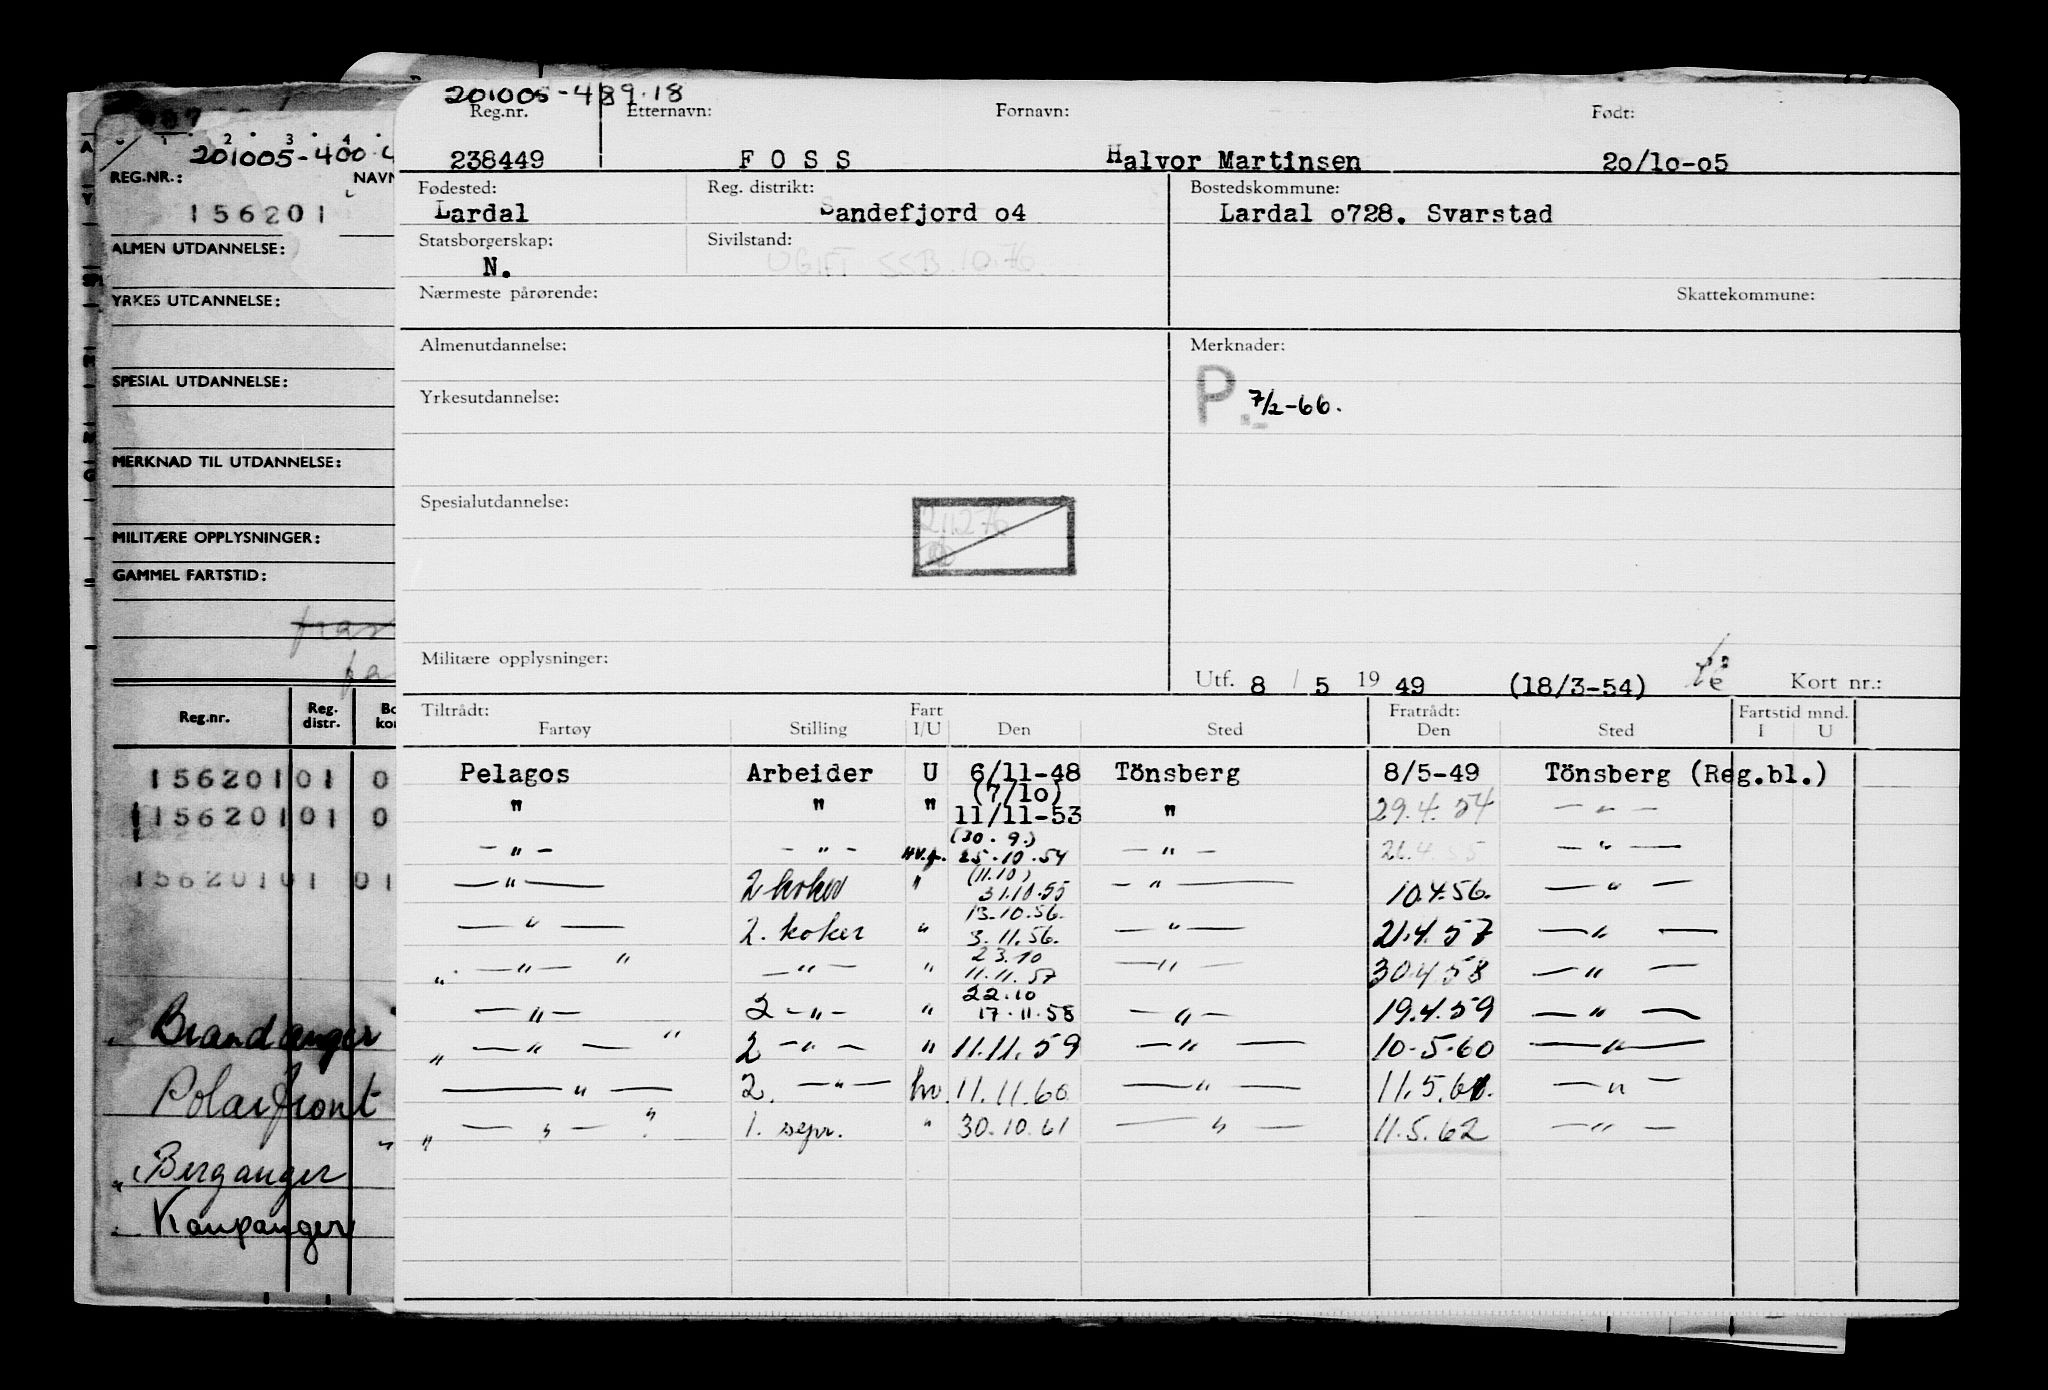 201005-489.18
Reg.nr. Etternavn: Fornavn: Født:
238449 FOSS Halvor Martinsen 20/10-05
Fødested: Reg. distrikt: Bostedskommune:
Lardal Sandefjord 04 Lardal 0728. Svarstad
Statsborgerskap: Sivilstand:
N. UGIFT SSB 10.76
Nærmeste pårørende: Skattekommune:
Almenutdannelse: Merknader:
P. 7/2-66.
Yrkesutdannelse:
Spesialutdannelse:
Militære opplysninger:
Utf. 8 / 5 19 49 (18/3-54) Kort nr.:
Tiltrådt: Fart Fratrådt: Fartstid mnd.
Fartøy Stilling I/U Den Sted Den Sted I U
Pelagos Arbeider U 6/11-48 Tönsberg 8/5-49 Tönsberg (Reg.bl.)
(7/10)
" " " 11/11-53 " 29.4.54 — " —
(30.9.)
— " — — " — HV.f. 25.10.54 — " — — " —
(11.10)
— " — 2 koker " 31.10.55 — " — 10.4.56. — " —
13.10.56.
— " — 2. koker " 3.11.56. — " — 21.4.57 — " —
23.10
" — " — " — " — " 11.11.57 — " — 30.4.58 — " —
22.10
— " — 2 — " — " 17.11.58 — " — 19.4.59 — " —
" — " — " 2 — " — " 11.11.59 — " — 10.5.60 — " —
— " — 2. — " — hv. 11.11.60 — " — 11.5.61. — " —
" — " — " 1. sepr. " 30.10.61 — " — 11.5.62 — " —
201005-400
REG.NR.: NAVN
156201
ALMEN UTDANNELSE:
YRKES UTDANNELSE:
SPESIAL UTDANNELSE:
MERKNAD TIL UTDANNELSE:
MILITÆRE OPPLYSNINGER:
GAMMEL FARTSTID:
Reg.nr. Reg. distr.
156201 01 0
156201 01 0
156201 01 01
Brandanger
Polarfront
Berganger
Kaupanger